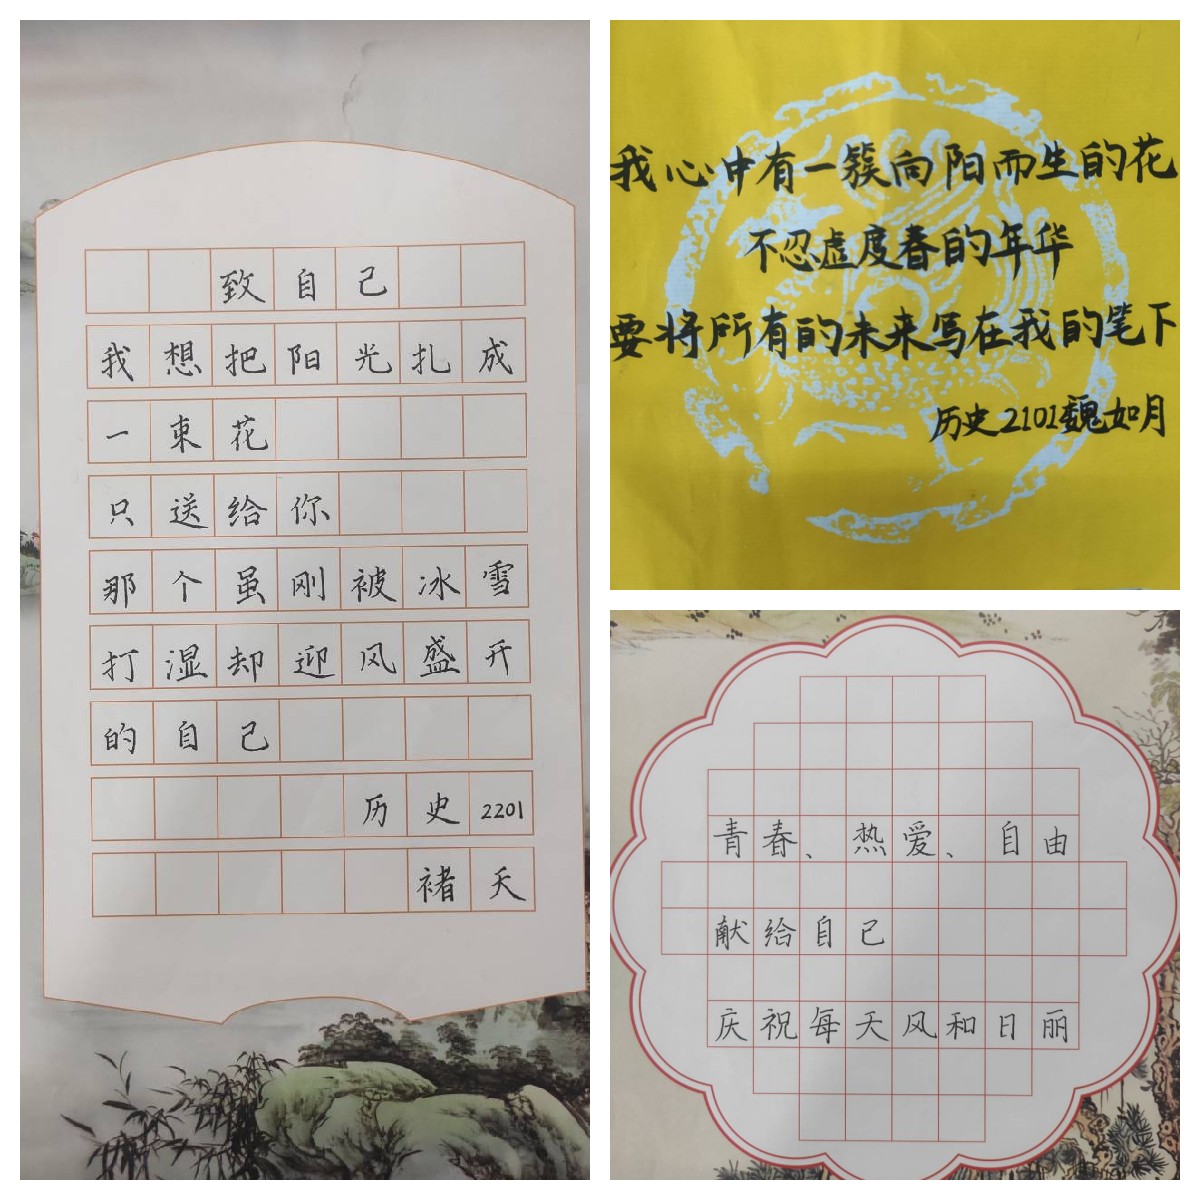 致自己
我想把阳光扎成
一束花
只送给你
那个虽刚被冰雪
打湿却迎风盛开
的自己
历史2201
褚天
我心中有一簇向阳而生的花
不忍虚度春的年华
要将所有的未来写在我的笔下
历史2101魏如月
青春、热爱、自由
献给自己
庆祝每天风和日丽